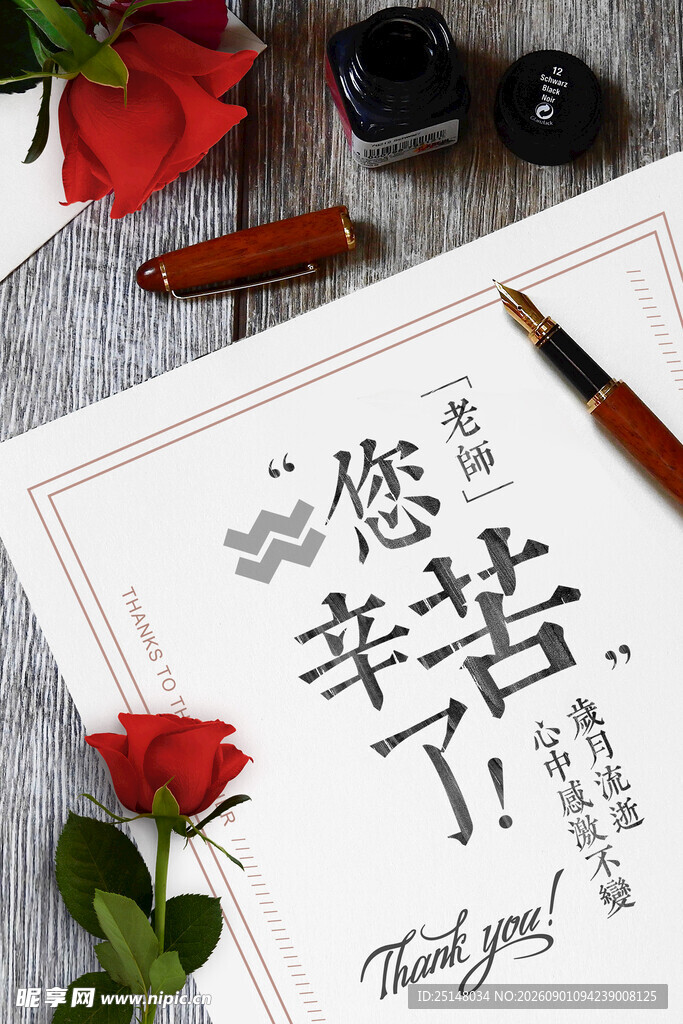 12
Schwarz
Black
Noir
「老師」
“您
辛苦
了!”
歲月流逝
心中感激不變
THANKS TO TH
R
Thank you!
昵享网 www.nipic.cn
ID:25148034 NO:20260901094239008125